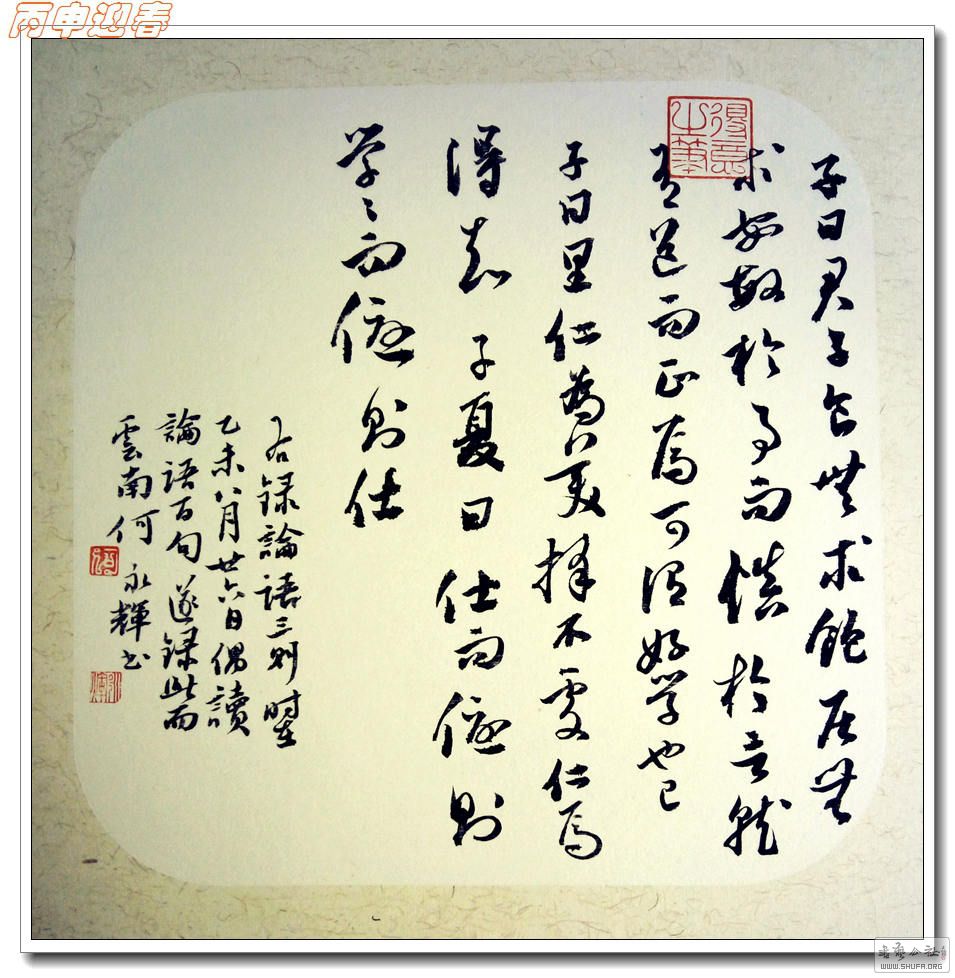 丙申迎春
子曰君子食無求飽居無
求安敏於事而慎於言就
有道而正焉可謂好学也已
子曰里仁為美擇不處仁焉
得知 子夏曰仕而優則
学〻而優則仕
右録論語三則 時在
乙未八月廿六日偶讀
論語百句遂録此而
雲南何永輝书
得意之筆
WWW.SHUFA.ORG